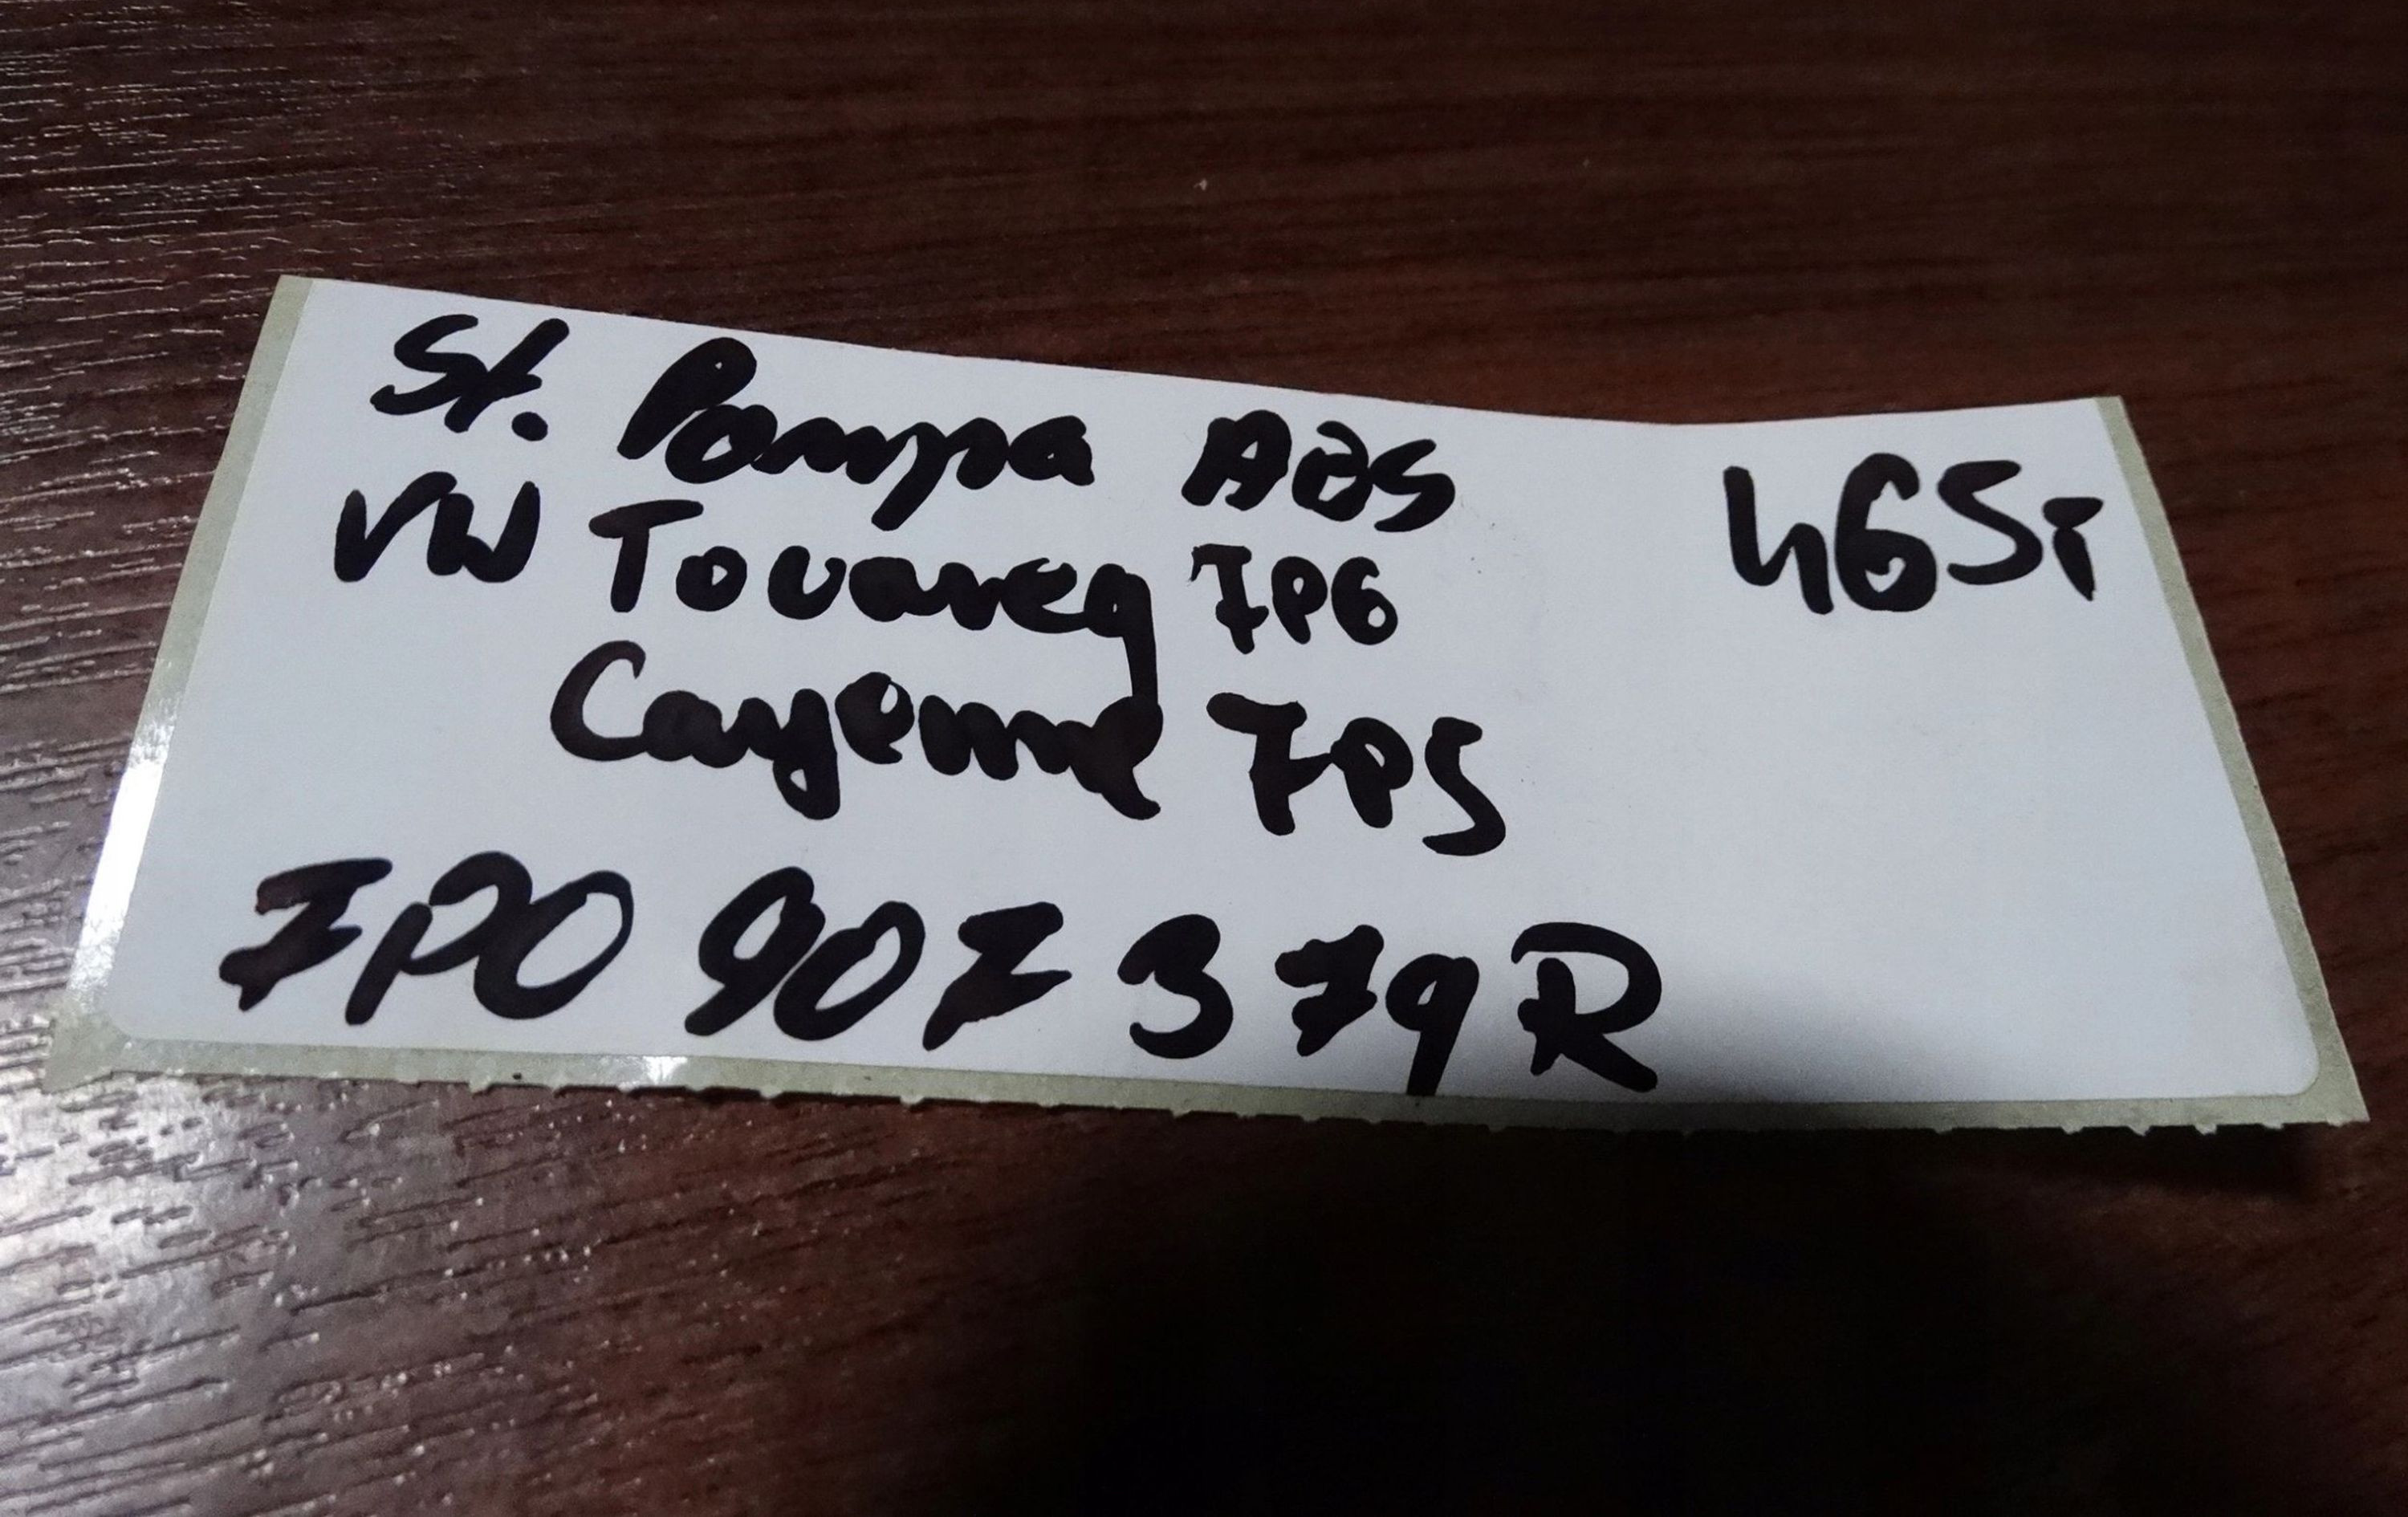 St. Pompa ABS
46Si
VW Touareg 7P6
Cayenne 7P5
7P0 907 379R